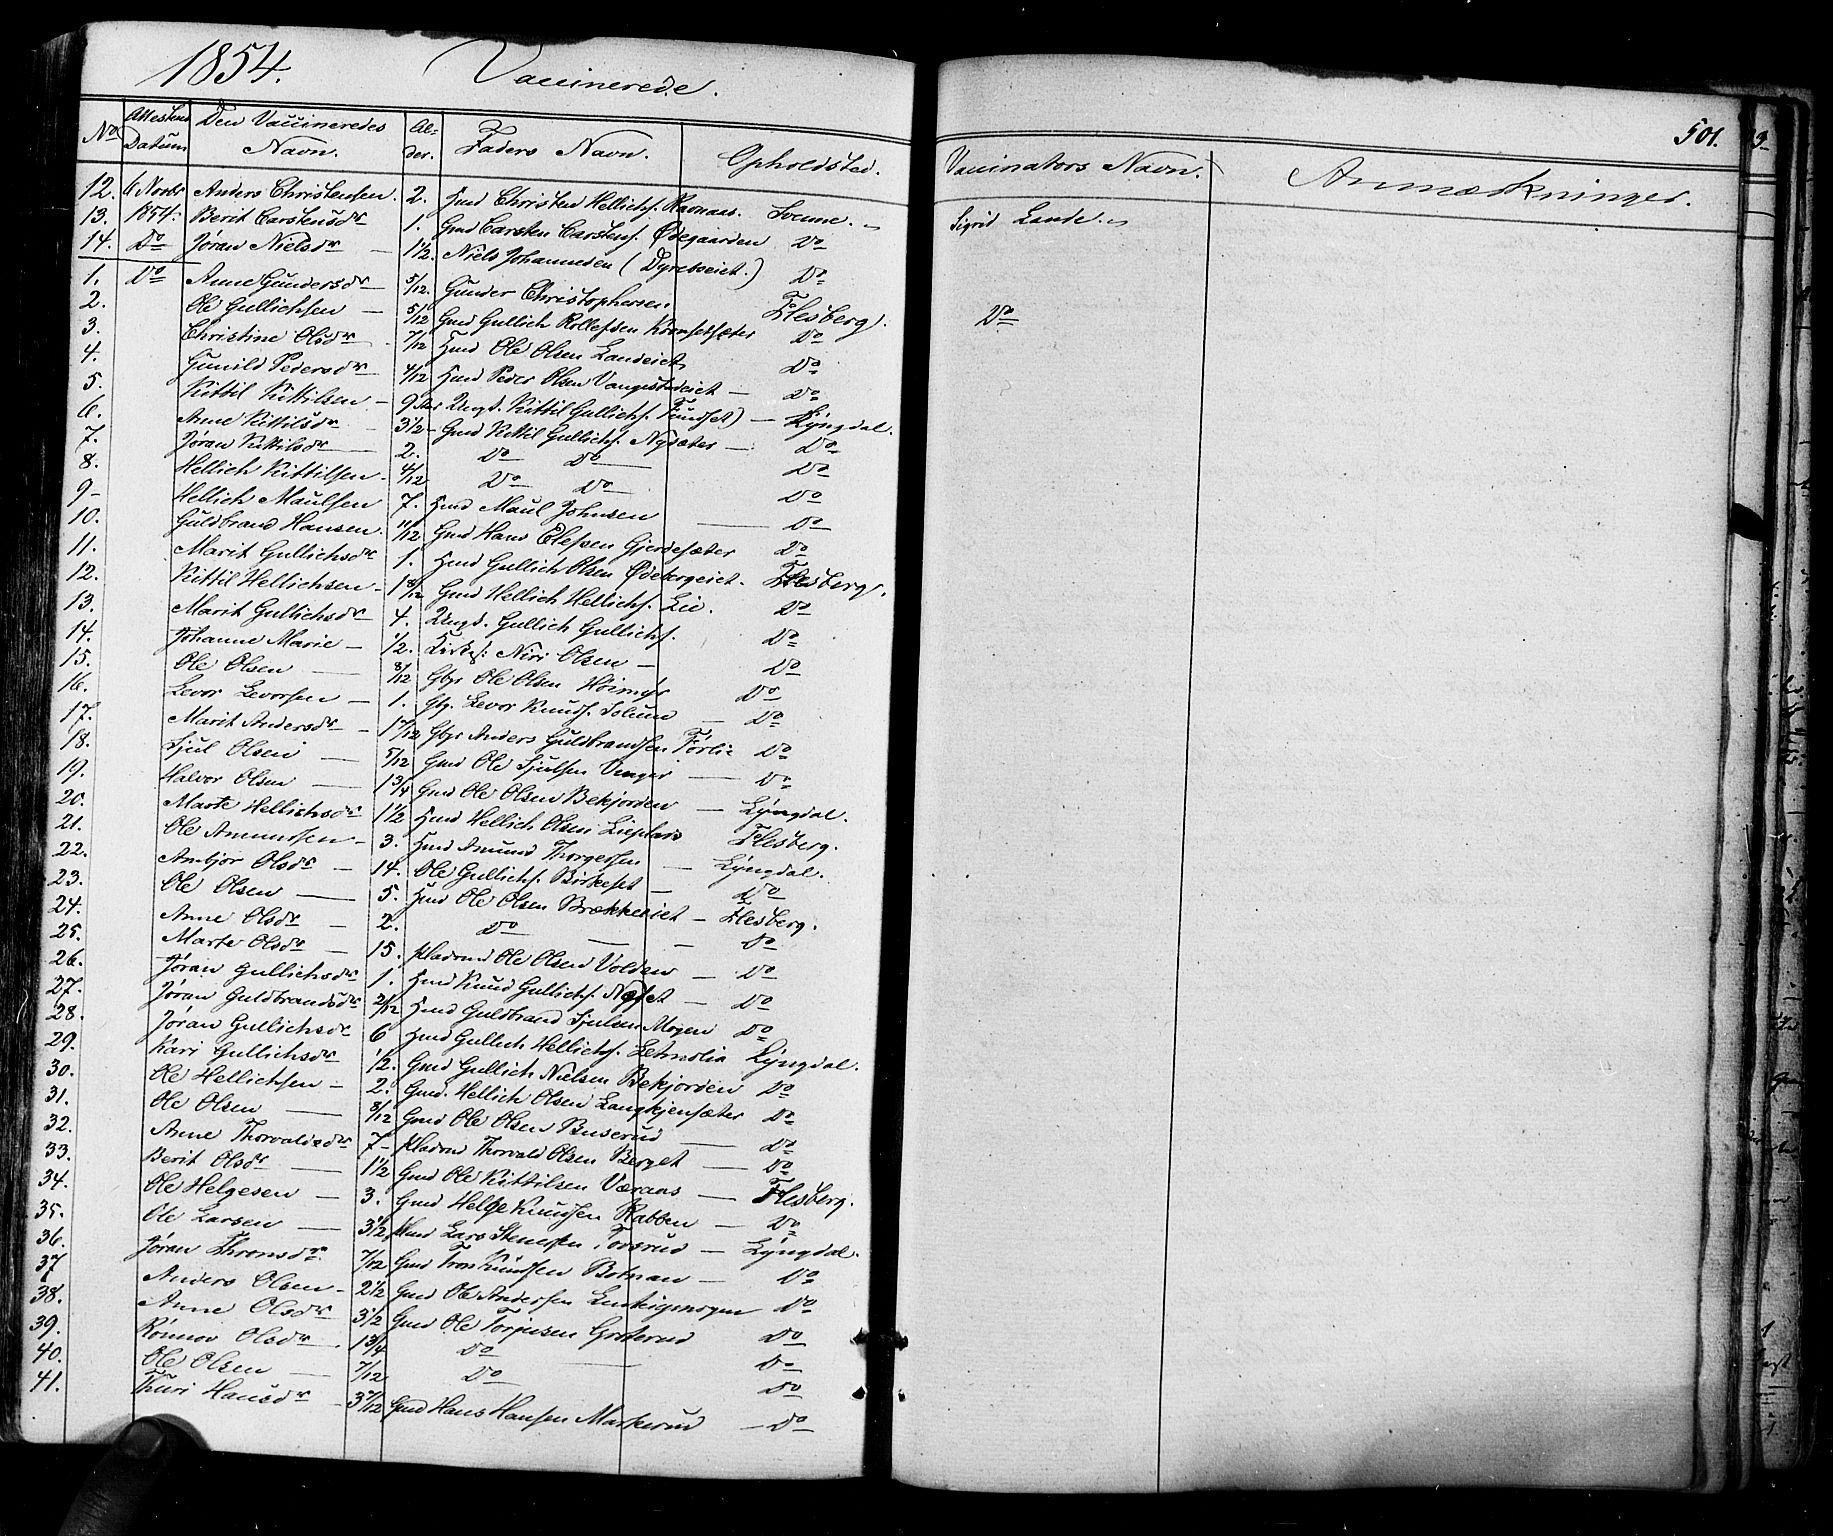 1854. Vaccinerede.
501.
No Attestens Datum Den Vaccineredes Navn. Alder. Faders Navn. Opholdsted. Vaccinators Navn. Anmærkninger.
12. 6 Novbr Anders Christensen. 2. Hmd Christen Hellichs. Ravnaas. Svenne. Sigrid Lande.
13. 1854. Berit Carstensdr 1. Gmd Carsten Carstens. Ødegaarden Do
14. Do Jøran Nielsdr — 1 1/2. Niels Johannesen (Dyreboeiet.) Do
1. Do Anne Gundersdr 5/12. Gunder Christophersen. Flesberg. Do
2. Ole Gullichsen — 5/12 Gmd Gullich Rollefsen Kronsetsæter Do
3. Christine Olsdr 7/12 Hmd Ole Olsen Landeiet Do
4. Gunild Pedersdr 4/12 Hmd Peder Olsen Vangestadeiet — Do
5. Kittil Kittilsen — 9 Ungk. Kittil Gullichs. Fundset) — Lyngdal.
6. Anne Kittilsdr — 3 1/2 — Gmd Kittil Gullichs. Nysæter — Do
7. Jøran Kittilsdr — 2. Do Do — Do
8. Hellich Kittilsen — 4/12 Do Do — Do
9 — Hellich Maulsen 7. Hmd Maul Johnsen — Do
10. Guldbrand Hansen. 11/12 Gmd Hans Elefsen Gjerdesæter Do
11. Marit Gullichsdr 1. Hmd Gullich Olsen Ødebergeiet. Flesberg.
12. Kittil Hellichsen — 1 8/12 Gmd Hellich Hellichs. Lie. Do
13. Marit Gullichsdr 4. Ungk. Gullich Gullichs. Do
14. Johanne Marie — 1/2. Niri Olsen — Do
15. Ole Olsen — 8/12 Gbr Ole Olsen Høimyr Do
16. Levor Levorsen — 1. Gbr. Levor Knuds. Solum — Do
17. Marit Andersdr — 17/12 Gbr Anders Guldbrandsen Førlie Do
18. Sjul Olsen — 5/12 Gmd Ole Sjulsen Vinger — Do
19. Halvor Olsen — 1 3/4 Gmd Ole Olsen Bekjorden — Lyngdal.
20. Marte Hellichsdr 1 1/2 Hmd Hellich Olsen Lieplads Flesberg.
21. Ole Amundsen — 3. Hmd Amund Thorgersen — Lyngdal.
22. Ambjør Olsdr — 14. Ole Gullichs. Birkeset — Do
23. Ole Olsen — 5. Hmd Ole Olsen Brækkeeiet — Flesberg.
24. Anne Olsdr — 2. Do — Do
25. Marte Olsdr — 15. Kladmd Ole Olsen Volden — Do
26. Jøran Gullichsdr 1. Hmd Knud Gullichs. Næset — Do
27. Jøran Guldbrandsdr 2/12 Hmd Guldbrand Sjulsen Mogen Do
28. Jøran Gullichsdr 6 Hmd Gullich Hellichs. Letmolia Lyngdal.
29. Kari Gullichsdr 1/2. Gmd Gullich Nielsen Bekjorden Do
30. Ole Hellichsen — 2. Gmd. Hellich Olsen Langkjensæter Do
31. Ole Olsen — 8/12 Gmd Ole Olsen Buserud — Do
32. Anne Thorvaldsdr 7 — Kladmd Thorvald Olsen Berget — Do
33. Berit Olsdr — 1 1/2 Gmd Ole Kittilsen Væraas — Flesberg.
34. Ole Helgesen — 3. Gmd Helge Knudsen Rabben — Do
35. Ole Larsen — 3 1/2 Hmd Lars Stenersen Torsrud — Lyngdal.
36. Jøran Thronsdr 7/12 Gmd Tron Knudsen Botnan — Do
37 Anders Olsen — 2 1/2 Gmd Ole Andersen Do
38. Anne Olsdr 3 1/2 Gmd Ole Torjusen Groterud Do
39. Rønnov Olsdr. 1 3/4 Do — Do
40. Ole Olsen — 7/12 Do Do
41. Thuri Hansdr — 3 2/12 Gmd Hans Hansen Markerud — Do